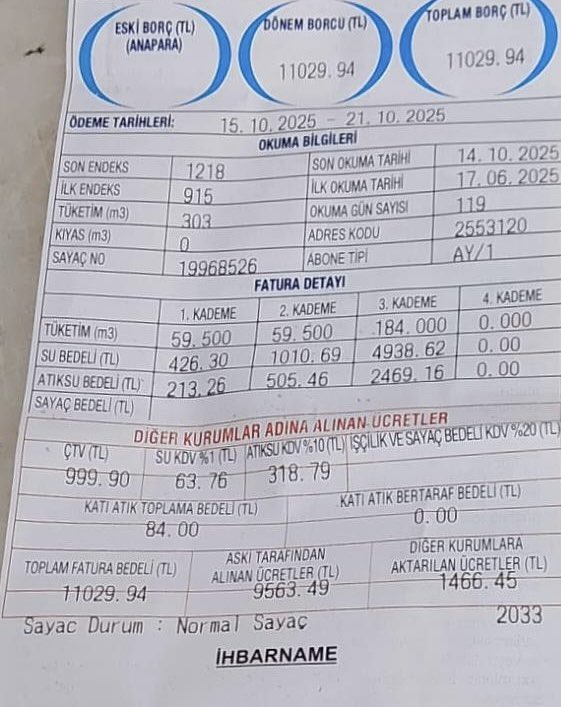 ESKİ BORÇ (TL)
(ANAPARA)
DÖNEM BORCU (TL)
11029.94
TOPLAM BORÇ (TL)
11029.94
ÖDEME TARİHLERİ: 15.10.2025 - 21.10.2025
OKUMA BİLGİLERİ
SON ENDEKS 1218 SON OKUMA TARİHİ 14.10.2025
İLK ENDEKS 915 İLK OKUMA TARİHİ 17.06.2025
TÜKETİM (m3) 303 OKUMA GÜN SAYISI 119
KIYAS (m3) 0 ADRES KODU 2553120
SAYAÇ NO 19968526 ABONE TİPİ AY/1
FATURA DETAYI
1. KADEME 2. KADEME 3. KADEME 4. KADEME
TÜKETİM (m3) 59.500 59.500 184.000 0.000
SU BEDELİ (TL) 426.30 1010.69 4938.62 0.00
ATIKSU BEDELİ (TL) 213.26 505.46 2469.16 0.00
SAYAÇ BEDELİ (TL)
DİĞER KURUMLAR ADINA ALINAN ÜCRETLER
ÇTV (TL) SU KDV %1 (TL) ATIKSU KDV %10 (TL) İŞÇİLİK VE SAYAÇ BEDELİ KDV %20 (TL)
999.90 63.76 318.79
KATI ATIK TOPLAMA BEDELİ (TL) KATI ATIK BERTARAF BEDELİ (TL)
84.00 0.00
TOPLAM FATURA BEDELİ (TL) ASKİ TARAFINDAN ALINAN ÜCRETLER (TL) DİĞER KURUMLARA AKTARILAN ÜCRETLER (TL)
11029.94 9563.49 1466.45
Sayac Durum : Normal Sayaç 2033
İHBARNAME